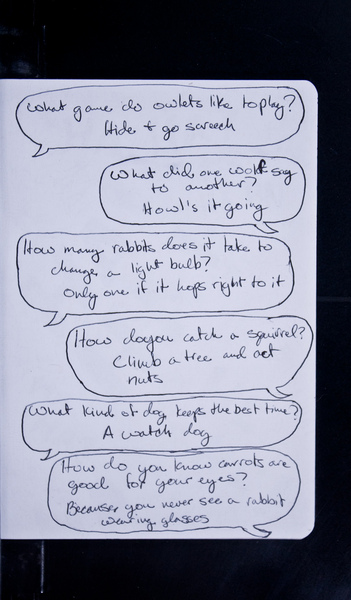 What game do owlets like to play?
Hide & go screech
What did one woolf say
to another?
Howl's it going
How many rabbits does it take to
change a light bulb?
only one if it hops right to it
How do you catch a squirrel?
Climb a tree and act
nuts
What kind of dog keeps the best time?
A watch dog
How do you know carrots are
good for your eyes?
Because you never see a rabbit
wearing glasses